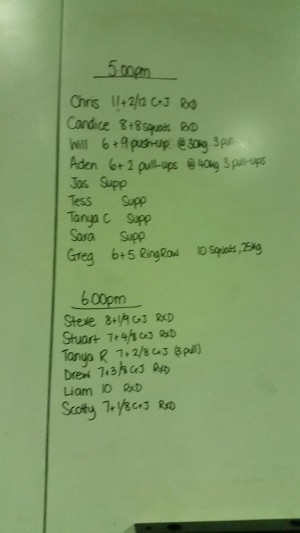 5:00pm
Chris 11+2/12 C+J RXD
Candice 8+8 squats RXD
Will 6+9 push-up @30kg 3 pull
Aden 6+2 pull-ups @40kg 3 pull-ups
Jas Supp
Tess Supp
Tanya C Supp
Sara Supp
Greg 6+5 Ring Row 10 Squats, 25kg
6:00pm
Steve 8+1/9 C+J RXD
Stuart 7+4/8 C+J RXD
Tanya R 7+2/8 C+J (3 pull)
Drew 7+3/8 C+J RXD
Liam 10 RXD
Scotty 7+1/8 C+J RXD